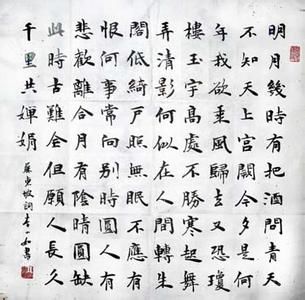 明月幾時有把酒問青天
不知天上宮闕今夕是何
年我欲乘風歸去又恐瓊
樓玉宇高處不勝寒起舞
弄清影何似在人間轉朱
閣低綺戶照無眠不應有
恨何事常向別時圓人有
悲歡離合月有陰晴圓缺
此時古難全但願人長久
千里共嬋娟
蘇東坡詞